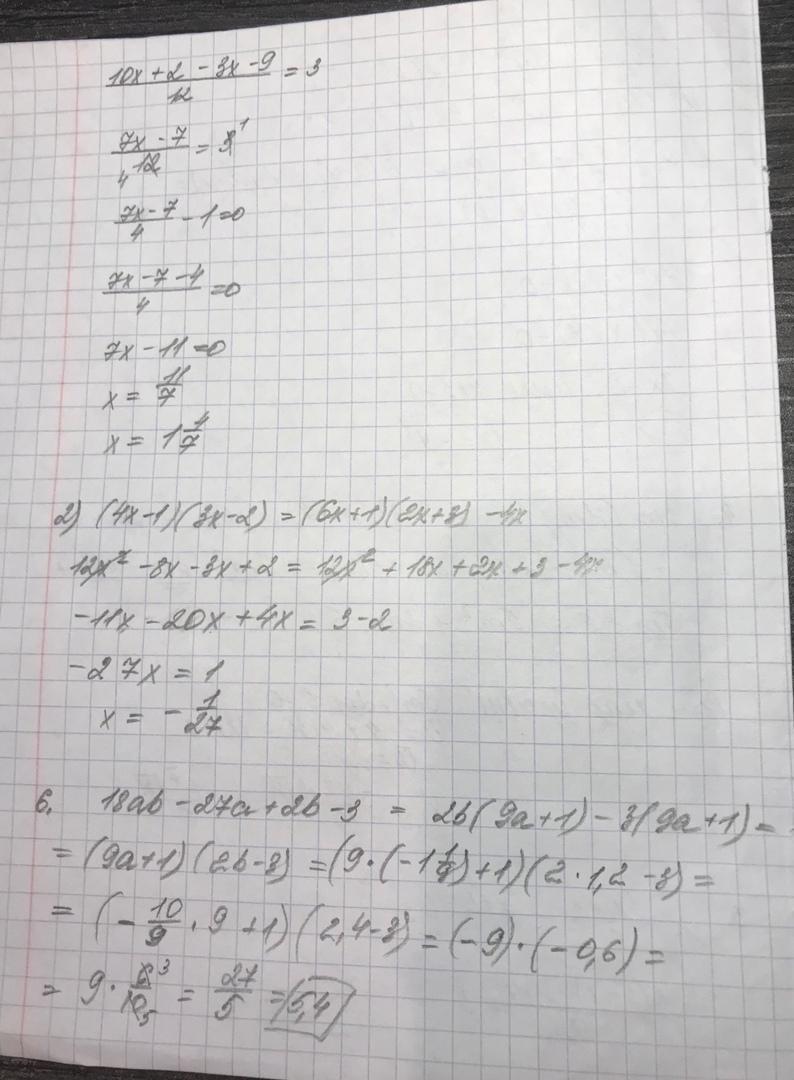 10x + 2 - 3x - 9 / 12 = 3
7x - 7 / 4 12 = 3 1
7x - 7 / 4 - 1 = 0
7x - 7 - 4 / 4 = 0
7x - 11 = 0
x = 11/7
x = 1 4/7
2) (4x-1)(3x-2) = (6x+1)(2x+3) - 4x
12x² - 8x - 3x + 2 = 12x² + 18x + 2x + 3 - 4x
-11x - 20x + 4x = 3 - 2
-27x = 1
x = - 1/27
6. 18ab - 27a + 2b - 3 = 2b(9a+1) - 3(9a+1) =
= (9a+1)(2b-3) = (9·(-1 1/9)+1)(2·1,2-3) =
= (- 10/9 · 9 + 1)(2,4-3) = (-9)·(-0,6) =
= 9 · 6 3 / 10 5 = 27/5 = 5,4